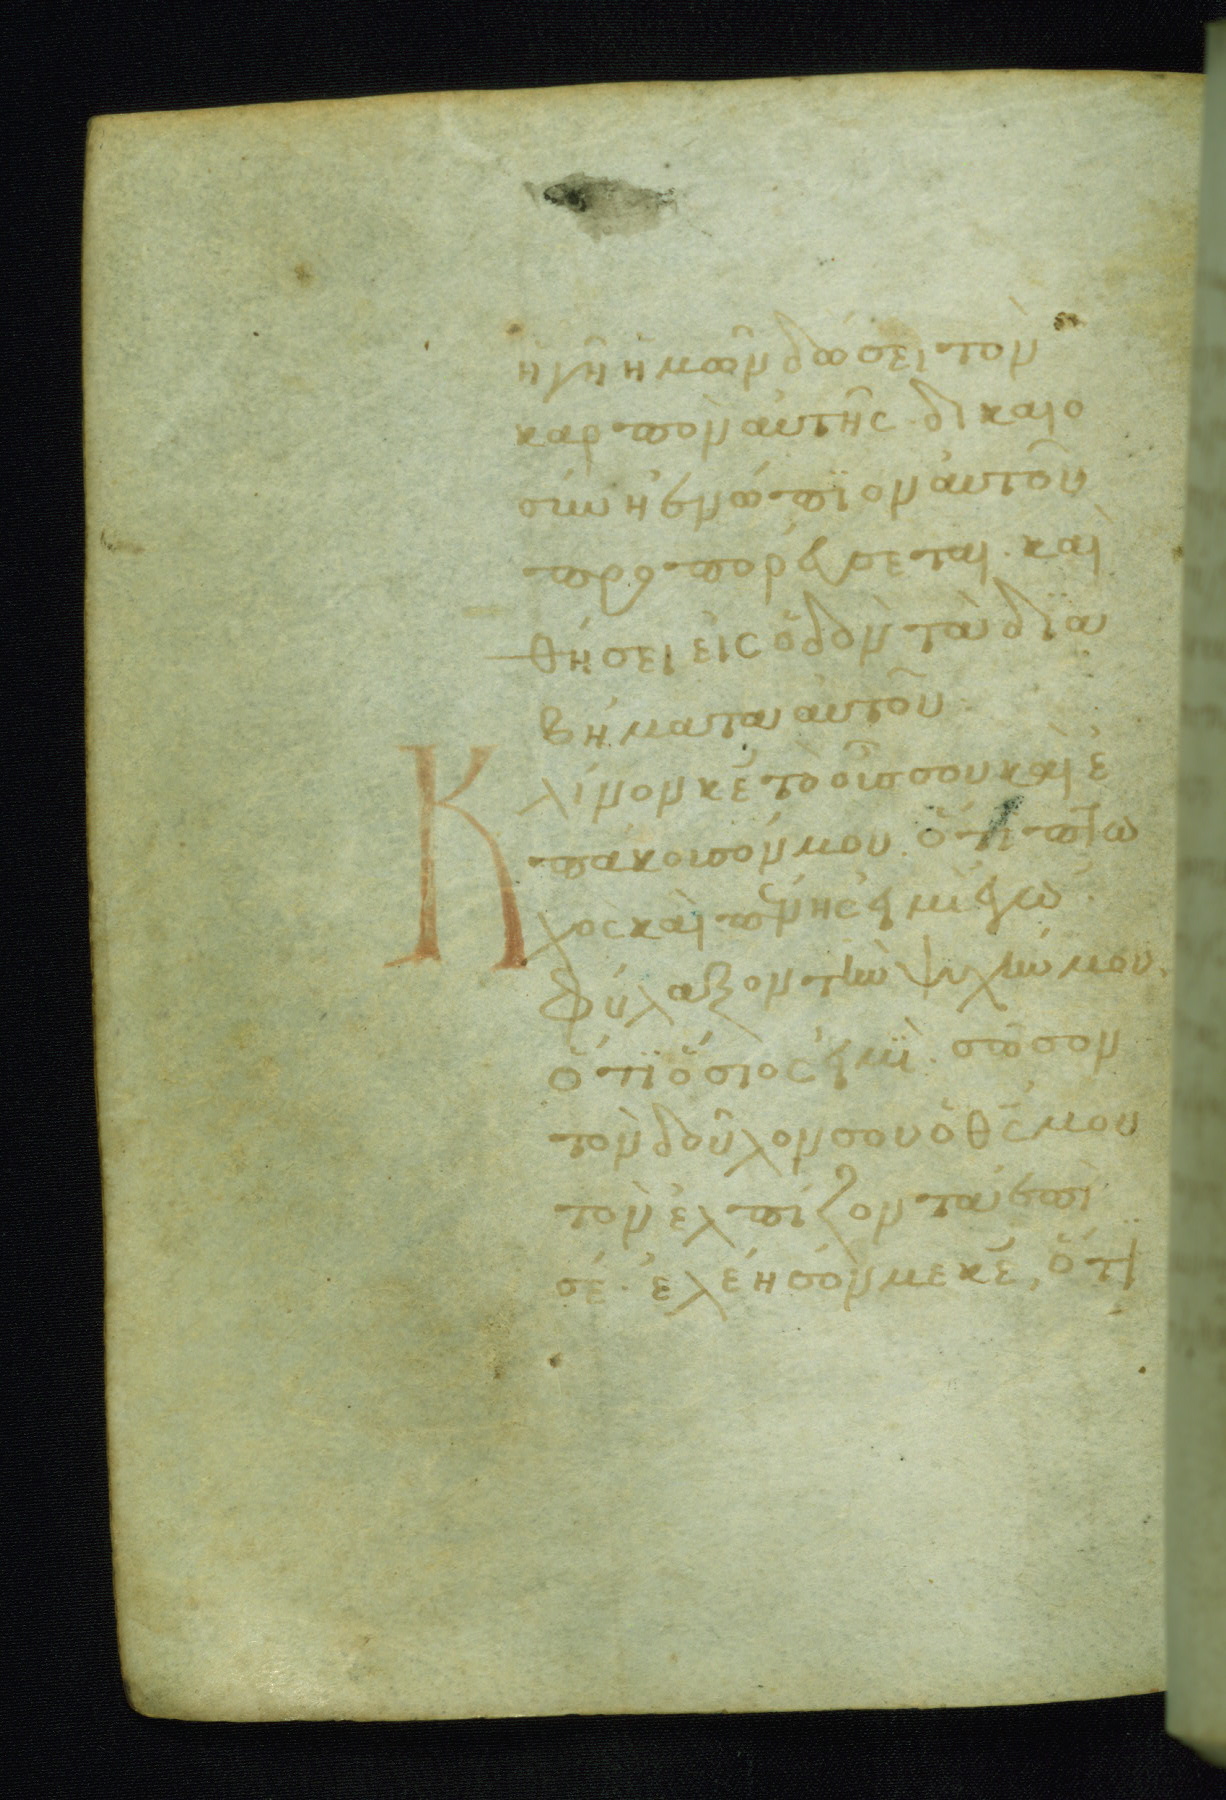 ἡ γῆ ἡμῶν δώσει τὸν
καρπὸν αὐτῆς· δικαιο
σύνη ἐνώπϊον αὐτοῦ
προπορεύσεται· καὶ
θήσει εἰς ὅδὸν τὰ δϊα
βήματα αὐτοῦ
Κλίνον κε̅ τὸ οὖς σου καὶ ἐ
πάκουσόν μου· ὅτι πτω
χὸς καὶ πένης εἰμὶ ἐγώ·
φύλαξον τὴν ψυχήν μου·
ὅτϊ ὅσιος εἰμὶ· σῶσον
τὸν δοῦλον σου ὁ θς̅ μου
τὸν ἐλπίζοντα ἐπὶ
σέ· ἐλέησόν με κε̅, ὅτι